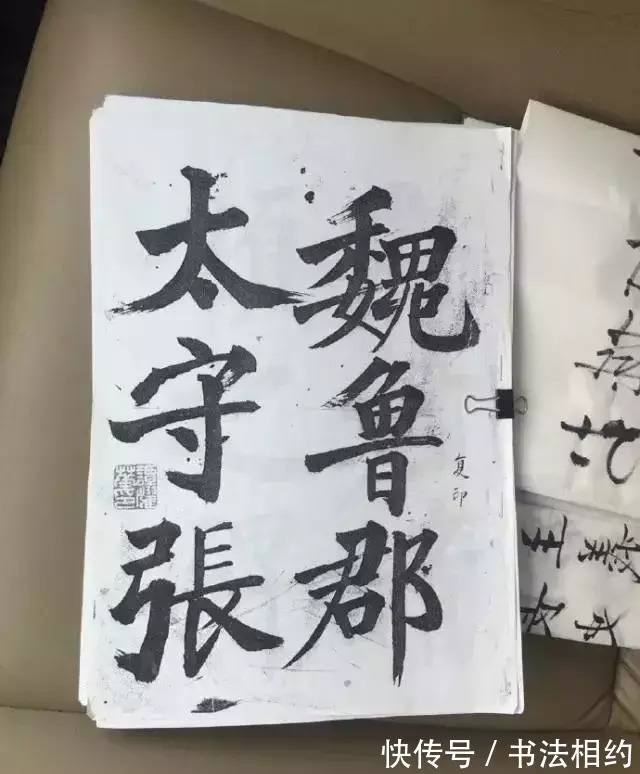 魏鲁郡
太守張
复印
快传号 / 书法相约